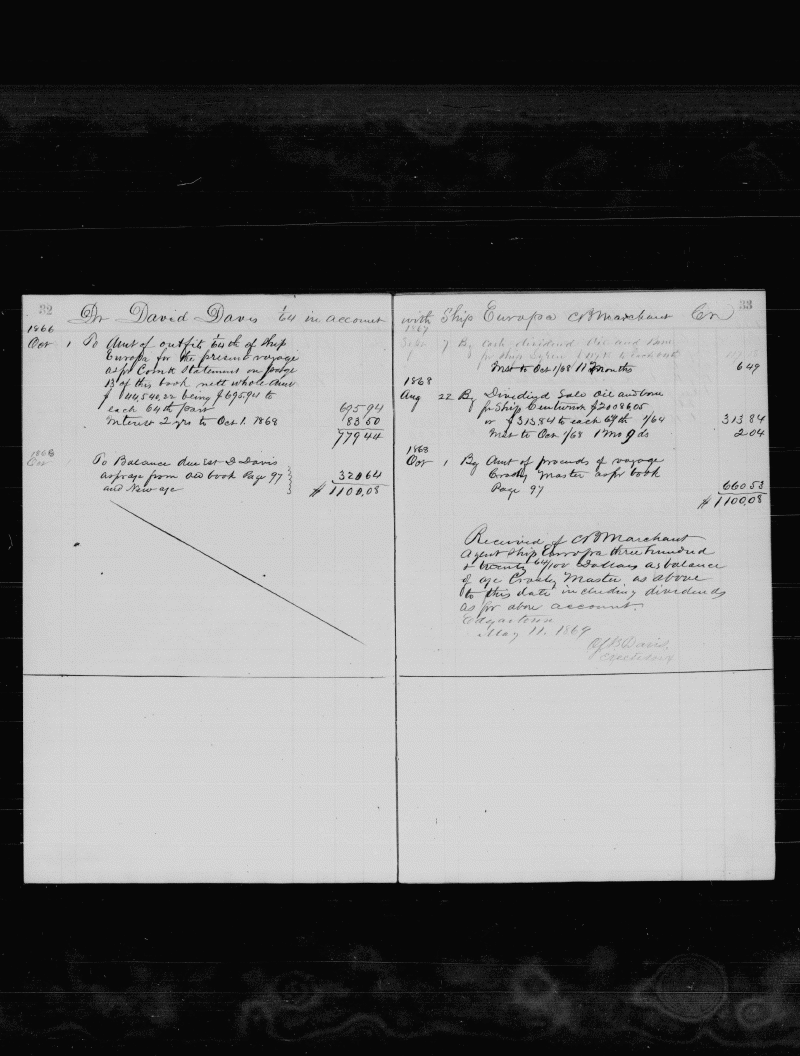 32
Dr David Davis 1/64 in account
1866
Oct 1 To Amt of outfits 1/64th of Ship
Europa for the present voyage
as pr Com Statement on page
13 of this book nett whole Amt
$ 44,540,22 being $ 695,94 to
each 64th part 695 94
Interest 2 yrs to Oct 1. 1868 83 50
779 44
To Balance due Est D Davis
as page from old book Page 97
and New a/c 320 64
$ 1100,08
33
with Ship Europa C B Marchant Cr
1867
Sept 7 By Cash dividend Oil and Bone
pr Ship to each 64th
Inst to Oct 1/68 11 months 6 49
1868
Aug 22 By Dividend Sale Oil and bone
pr Ship Centurion $ 20086,05
or $ 313 84 to each 64th 1/64 313 84
Inst to Oct 1/68 1 mo 9 ds 2 04
1868
Oct 1 By Amt of proceeds of voyage
Crosby Master as pr book
Page 97 660 53
$ 1100,08
Received of C B Marchant
Agent Ship Europa three hundred
& twenty 64/100 Dollars as balance
of a/c Crosby Master as above
to this date including dividends
as pr above account.
Edgartown
May 11. 1869
Davis